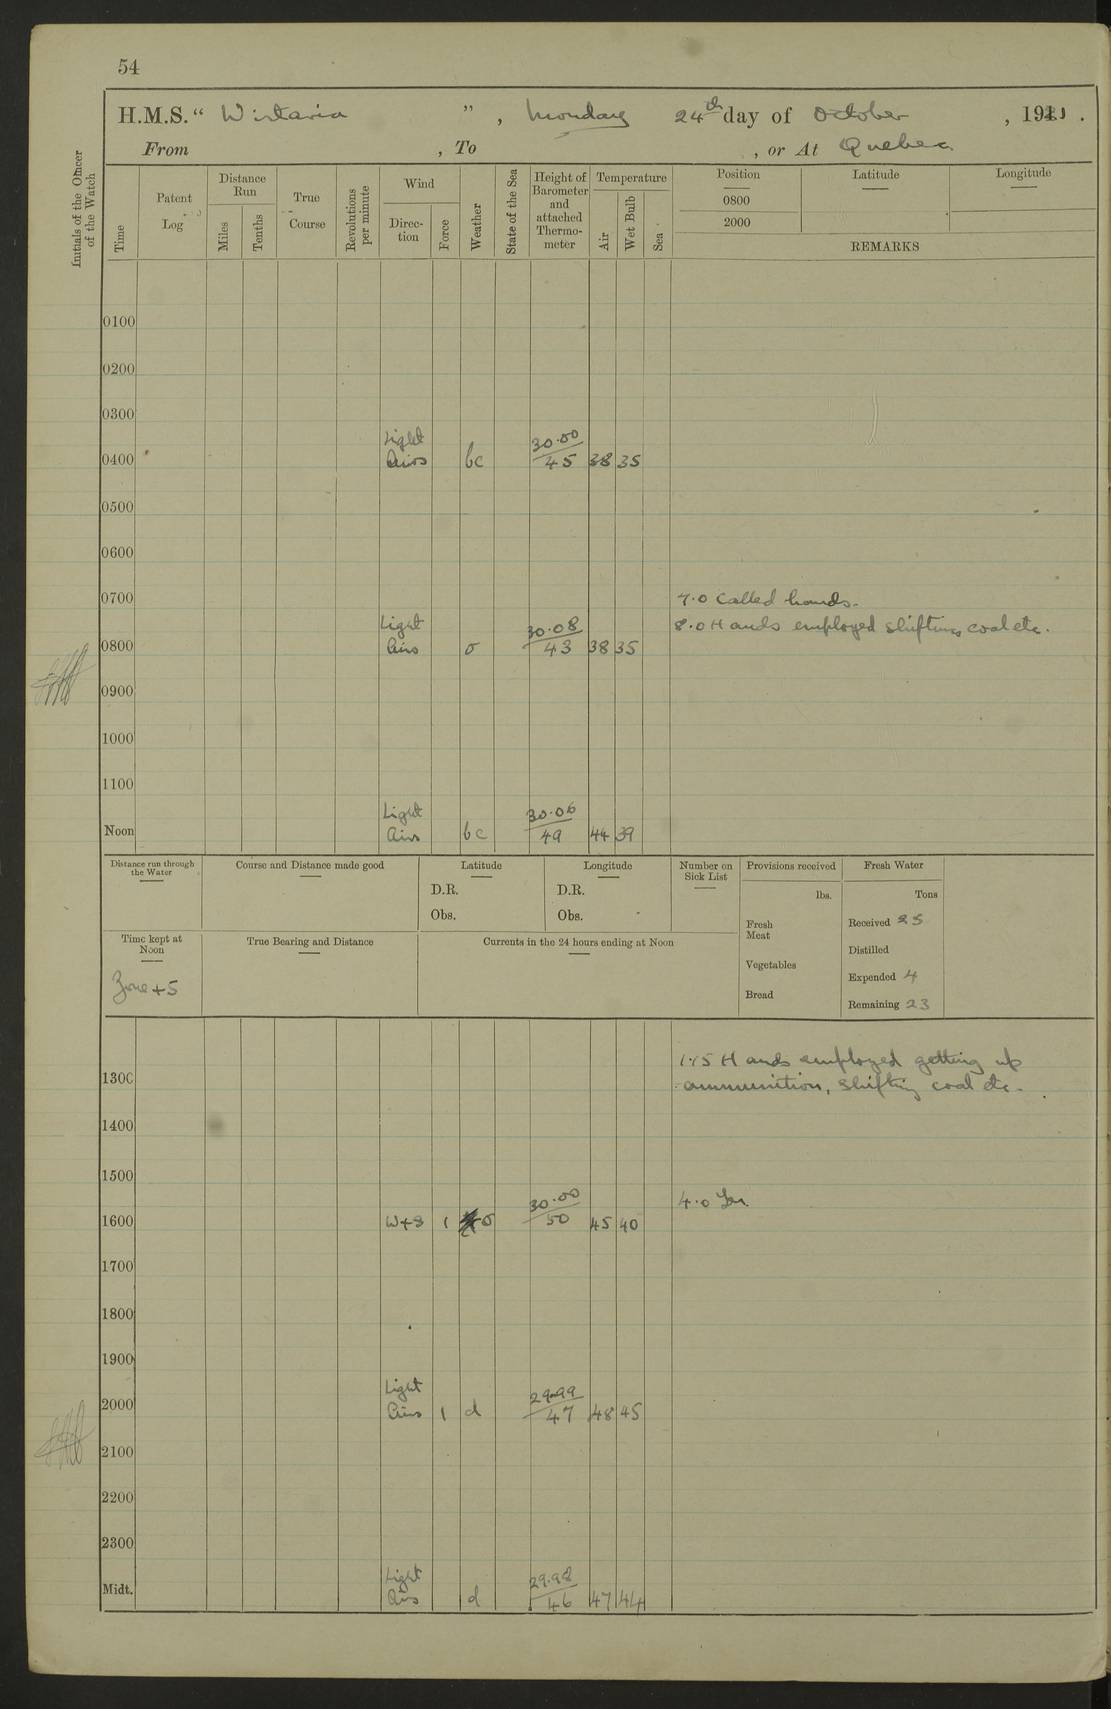 54
H.M.S. “ Wistaria ” , Monday 24th day of October , 1921 .
From , To , or At Quebec
Initials of the Officer of the Watch
Time
Patent Log
Distance Run
Miles
Tenths
True Course
Revolutions per minute
Wind
Direction
Force
Weather
State of the Sea
Height of Barometer and attached Thermometer
Temperature
Air
Wet Bulb
Sea
Position
Latitude
Longitude
0800
2000
REMARKS
0100
0200
0300
Light 30.00
0400 Airs bc 45 38 35
0500
0600
0700 7.0 Called hands.
Light 30.08 8.0 Hands employed shifting coal etc.
0800 Airs o 43 38 35
0900
1000
1100
Light 30.06
Noon Airs bc 49 44 39
Distance run through the Water
Course and Distance made good
Latitude
D.R.
Obs.
Longitude
D.R.
Obs.
Number on Sick List
Provisions received
lbs.
Fresh Meat
Vegetables
Bread
Fresh Water
Tons
Received 25
Distilled
Expended 4
Remaining 23
Time kept at Noon
Zone +5
True Bearing and Distance
Currents in the 24 hours ending at Noon
1.15 Hands employed getting up
1300 ammunition, shifting coal etc.
1400
1500
30.00 4.0
1600 W+S 1 o 50 45 40
1700
1800
1900
Light 29.99
2000 Airs 1 d 47 48 45
2100
2200
2300
Light 29.98
Midt. Airs d 46 47 44